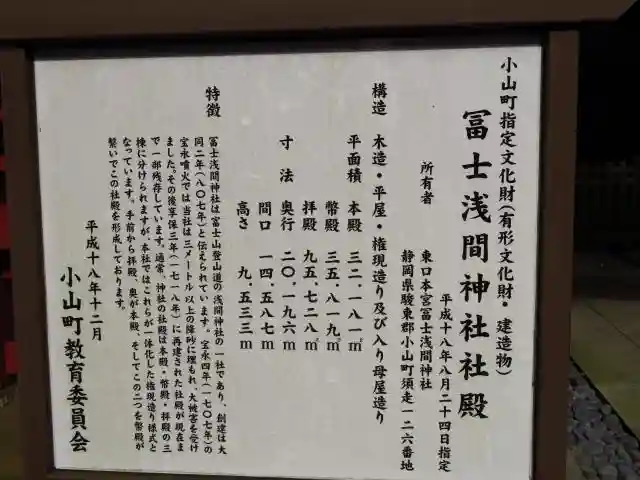 小山町指定文化財(有形文化財・建造物)
冨士浅間神社社殿
平成十八年八月二十四日指定
所有者 東口本宮冨士浅間神社
静岡県駿東郡小山町須走一二六番地
構造 木造・平屋・権現造り及び入り母屋造り
平面積 本殿 三二.一八一㎡
幣殿 三五.八一九㎡
拝殿 九五.七二八㎡
寸法 奥行 二〇.一九六m
間口 一四.五八七m
高さ 九.五三三m
特徴 冨士浅間神社は富士山登山道の浅間神社の一社であり、創建は大
同二年(八〇七年)と伝えられています。宝永四年(一七〇七年)の
宝永噴火では当社は三メートル以上の降砂に埋もれ、大被害を受け
ました。その後享保三年(一七一八年)に再建された社殿が現在ま
で一部残存しています。通常、神社の社殿は本殿、幣殿・拝殿の三
棟に分けられますが、本社ではこれらが一体化した権現造り様式と
なっています。手前から拝殿、奥が本殿、そしてこの二つを幣殿が
繋いでこの社殿を形成しております。
平成十八年十二月
小山町教育委員会